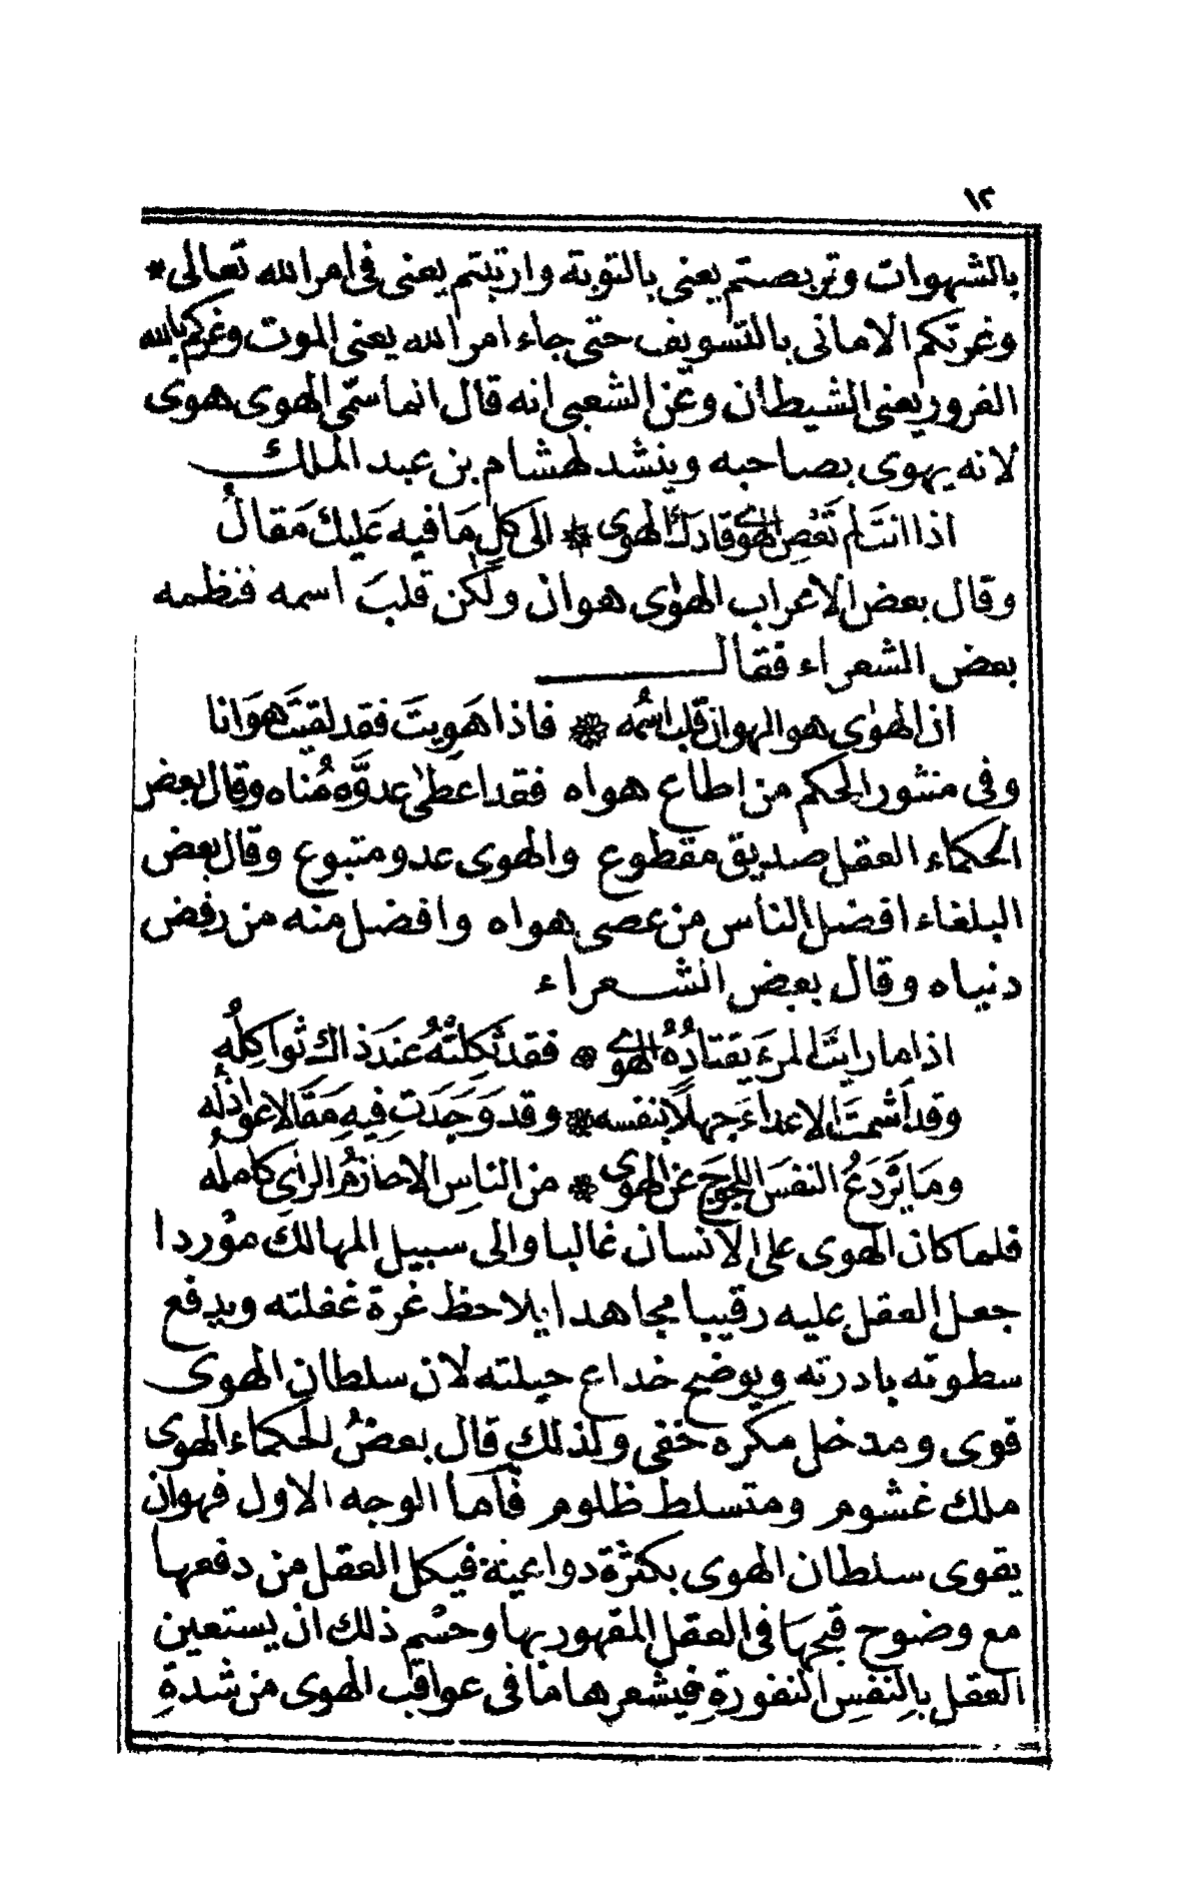 ١٢
بالشهوات وتربصتم يعنى بالتوبة وارتبتم يعنى فى امر الله تعالى *
وغرتكم الامانى بالتسويف حتى جاء امر الله يعنى الموت وغركم بالله
الغرور يعنى الشيطان وعن الشعبى انه قال انما سمّى الهوى هوى
لانه يهوى بصاحبه وينشد لهشام بن عبد الملك
اذا انتَ لم تَعْصِ الهوى قادكَ الهوى * الى كلِ مَا فيه عَليكَ مَقالُ
وقال بعض الاعراب الهوٰى هوان ولٰكن قلبَ اسمه فنظمه
بعض الشعراء فقال
ان الهوٰى هو الهوان قلب اسْمُه * فاذا هَوِيتَ فقد لقيتَ هَوَانا
وفى منثور الحكم من اطاع هواه فقد اعطٰى عدوَّه مُناه وقال بعض
الحكماء العقل صديق مقطوع والهوى عدو متبوع وقال بعض
البلغاء افضل الناس من عصى هواه وافضل منه من رفض
دنياه وقال بعض الشعراء
اذا ما رايتَ المرءَ يقتادُهُ الهوى * فقد ثكِلتْهُ عندَ ذاكَ ثواكِلُهِ
وقد اَشمتَ الاعداءَ جهلاً بنفسه * وقد وَجَدَتْ فيهِ مَقَالا عواذلُه
ومَا يَردَعُ النفسَ اللجوجَ عن الهوى * من الناسِ الا حازمُ الرأى كاملُه
فلما كان الهوى على الانسان غالبا والى سبيل المهالك مورْدا
جعل العقل عليه رقيبا مجاهدا يلاحظ غرة غفلته ويدفع
سطوته بادرته ويوضح خداع حيلته لان سلطان الهوى
قوى ومدخل مكره خفى ولذلك قال بعضُ الحكماء الهوى
ملك غشوم ومتسلط ظلوم فأما الوجه الاول فهوان
يقوى سلطان الهوى بكثرة دواعيه فيكل العقل من دفعها
مع وضوح قبحها فى العقل المقهور بها وحسْم ذلك ان يستعين
العقل بالنفسِ النفورةِ فيشعرها ما فى عواقب الهوى من شدةِ